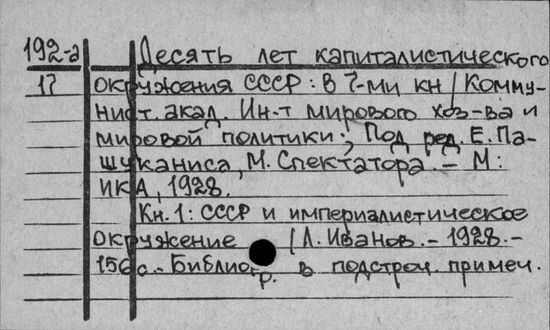 192-а Десять лет капиталистического
17 окружения СССР: В 7-ми кн / Комму-
нист. акад. Ин-т мирового хоз-ва и
мировой политики; Под ред. Е. Па-
шуканиса, М. Спектатора. - М:
ИКА, 1928.
Кн. 1: СССР и империалистическое
окружение / Л. Иванов. - 1928. -
156 с. - Библиогр. в подстроч. примеч.